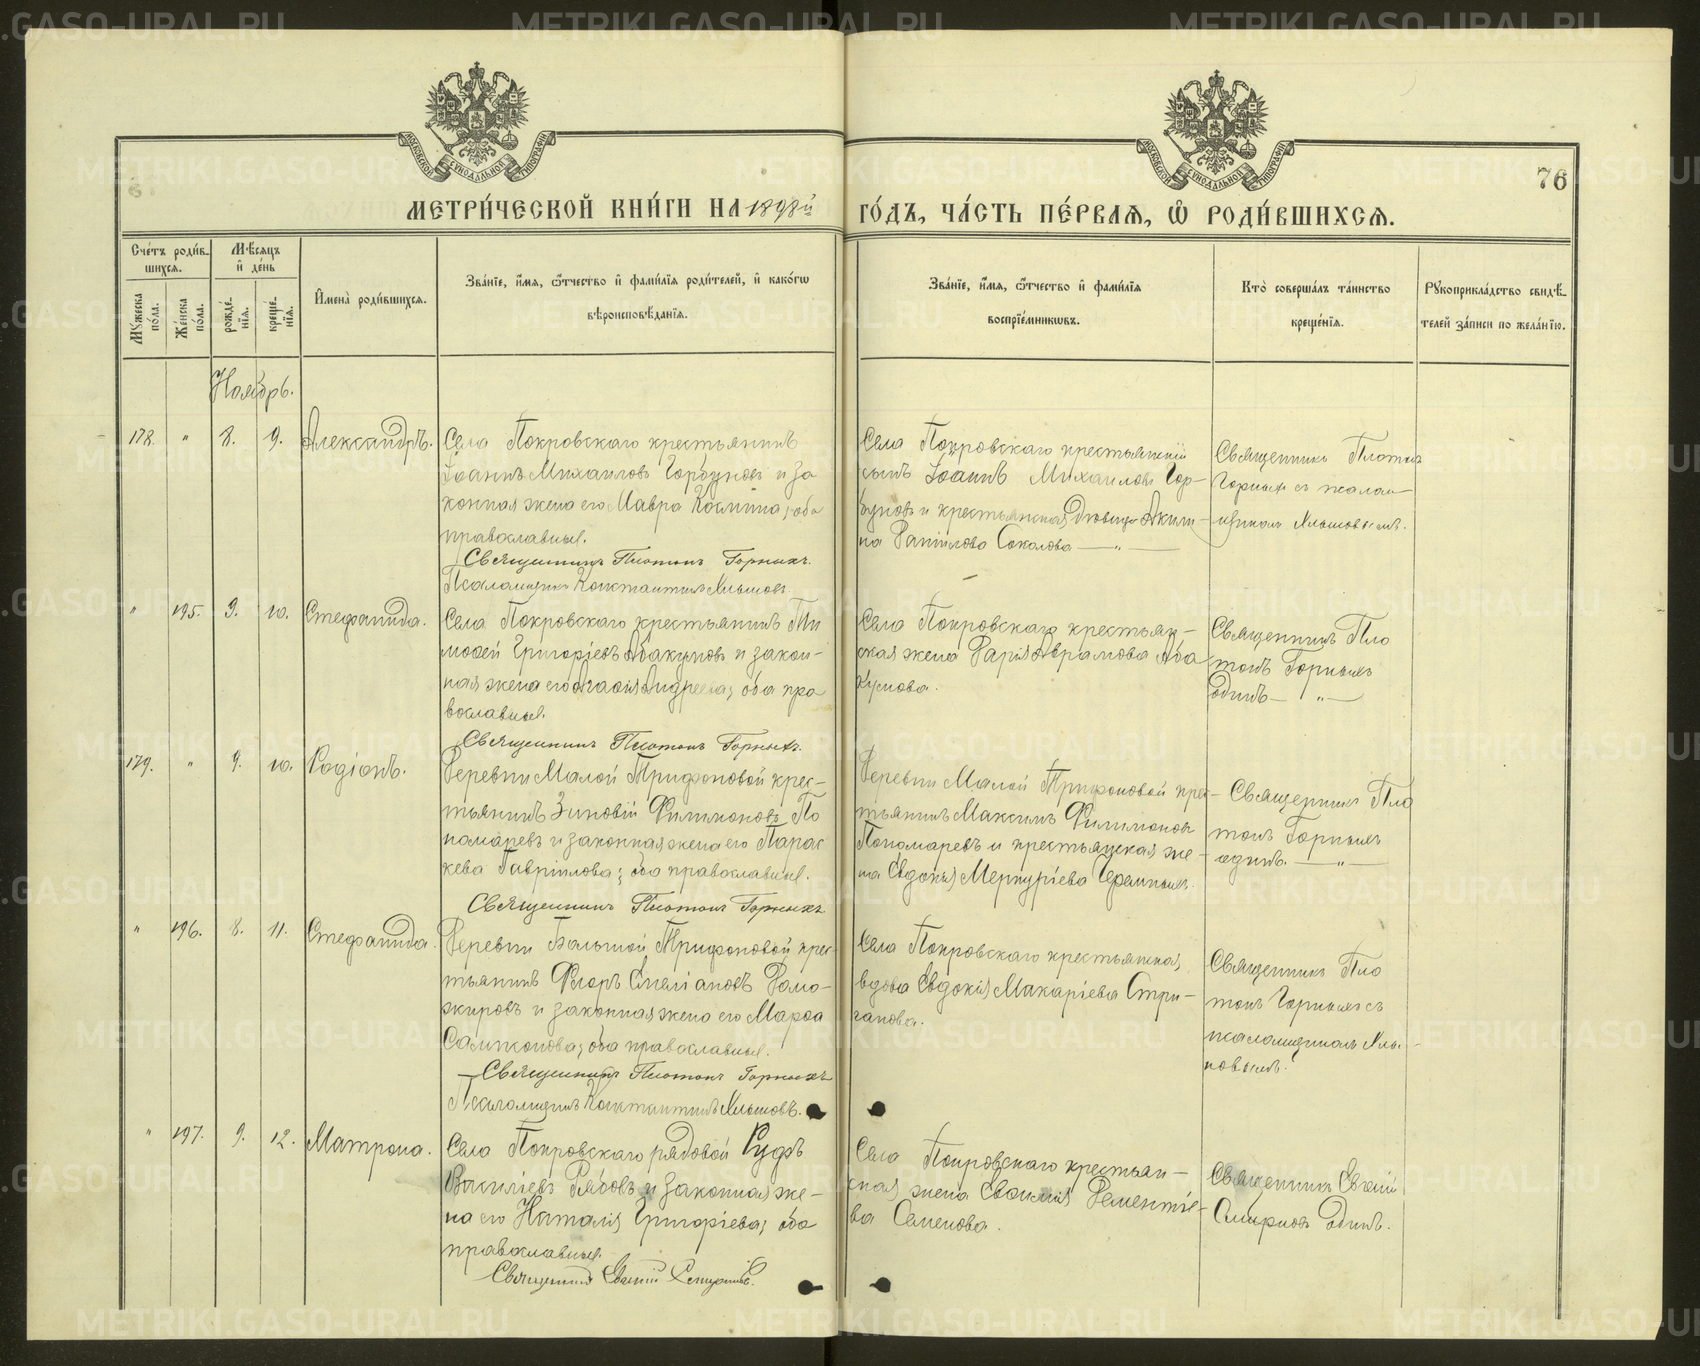 76
МЕТРИ́ЧЕСКОЙ КНИ́ГИ НА 1898й ГО́ДЪ, ЧА́СТЬ ПЕ́РВАѦ, Ѽ РОДИ́ВШИХСѦ.
МОСКОВСКОЙ СѴНОДАЛЬНОЙ ТИПОГРАФІИ
МОСКОВСКОЙ СѴНОДАЛЬНОЙ ТИПОГРАФІИ
Сче́тъ роди́вшихсѧ.
Мꙋ́жеска по́ла.
Же́нска по́ла.
Мѣ́сѧцъ и҆ де́нь
рожде́нїѧ.
креще́нїѧ.
И҆мена̀ роди́вшихсѧ.
Зва́нїе, и҆́мѧ, ѻ҆́тчество и҆ фами́лїѧ роди́телей, и҆ како́гѡ
вѣроисповѣ́данїѧ.
Зва́нїе, и҆́мѧ, ѻ҆́тчество и҆ фами́лїѧ
воспрїе́мникѡвъ.
Кто̀ соверша́лъ та́инство
креще́нїѧ.
Рꙋкоприкла́дство свидѣ́-
телей за́писи по жела́нїю.
Ноябрь.
178. " 8. 9. Александръ.
Села Покровскаго крестьянинъ
Іоаннъ Михаиловъ Горбуновъ и за
конная жена его Мавра Космина; оба
православные.
Священникъ Платонъ Горныхъ.
Псаломщикъ Константинъ
Села Покровскаго крестьянскій
сынъ Іоаннъ Михаиловъ Гор-
буновъ и крестьянская дѣвица Акили-
на Соколова — " —
Священникъ Платонъ
Горныхъ съ псалом-
щикомъ
" 195. 9. 10. Стефанида.
Села Покровскаго крестьянинъ Ти
моѳей Григоріевъ Абакумовъ и закон-
ная жена его Агаѳія Андреева; оба пра
вославные.
Священникъ Платонъ Горныхъ.
Села Покровскаго крестьян-
ская жена Дарія Аврамова Аба
кумова.
Священникъ Пла
тонъ Горныхъ
одинъ — " —
179. " 9. 10. Родіонъ.
Деревни Малой Трифоновой крес-
тьянинъ Зиновій Филимоновъ По
номаревъ и законная жена его Парас
кева Гавріилова; оба православные.
Священникъ Платонъ Горныхъ
Деревни Малой Трифоновой крес-
тьянинъ Максимъ Филимоновъ
Пономаревъ и крестьянская же-
на Евдокія Меркуріева
Священникъ Пла
тонъ Горныхъ
одинъ. — " —
" 196. 8. 11. Стефанида.
Деревни Большой Трифоновой крес-
тьянинъ Ѳеоръ Емеліановъ Домо-
жировъ и законная жена его Марѳа
Сампсонова; оба православные.
Священникъ Платонъ Горныхъ
Псаломщикъ Константинъ
Села Покровскаго крестьянская
вдова Евдокія Макаріева Стри-
ганова.
Священникъ Пла
тонъ Горныхъ съ
псаломщикомъ
" 197. 9. 12. Матрона.
Села Покровскаго рядовой Руфъ
Василіевъ Рябовъ и законная же-
на его Наталія Григоріева; оба
православные.
Священникъ Евгеній Смирновъ.
Села Покровскаго крестьян-
ская жена Евѳимія Дементіе-
ва Семенова.
Священникъ Евгеній
Смирновъ одинъ.
METRIKI.GASO-URAL.RU